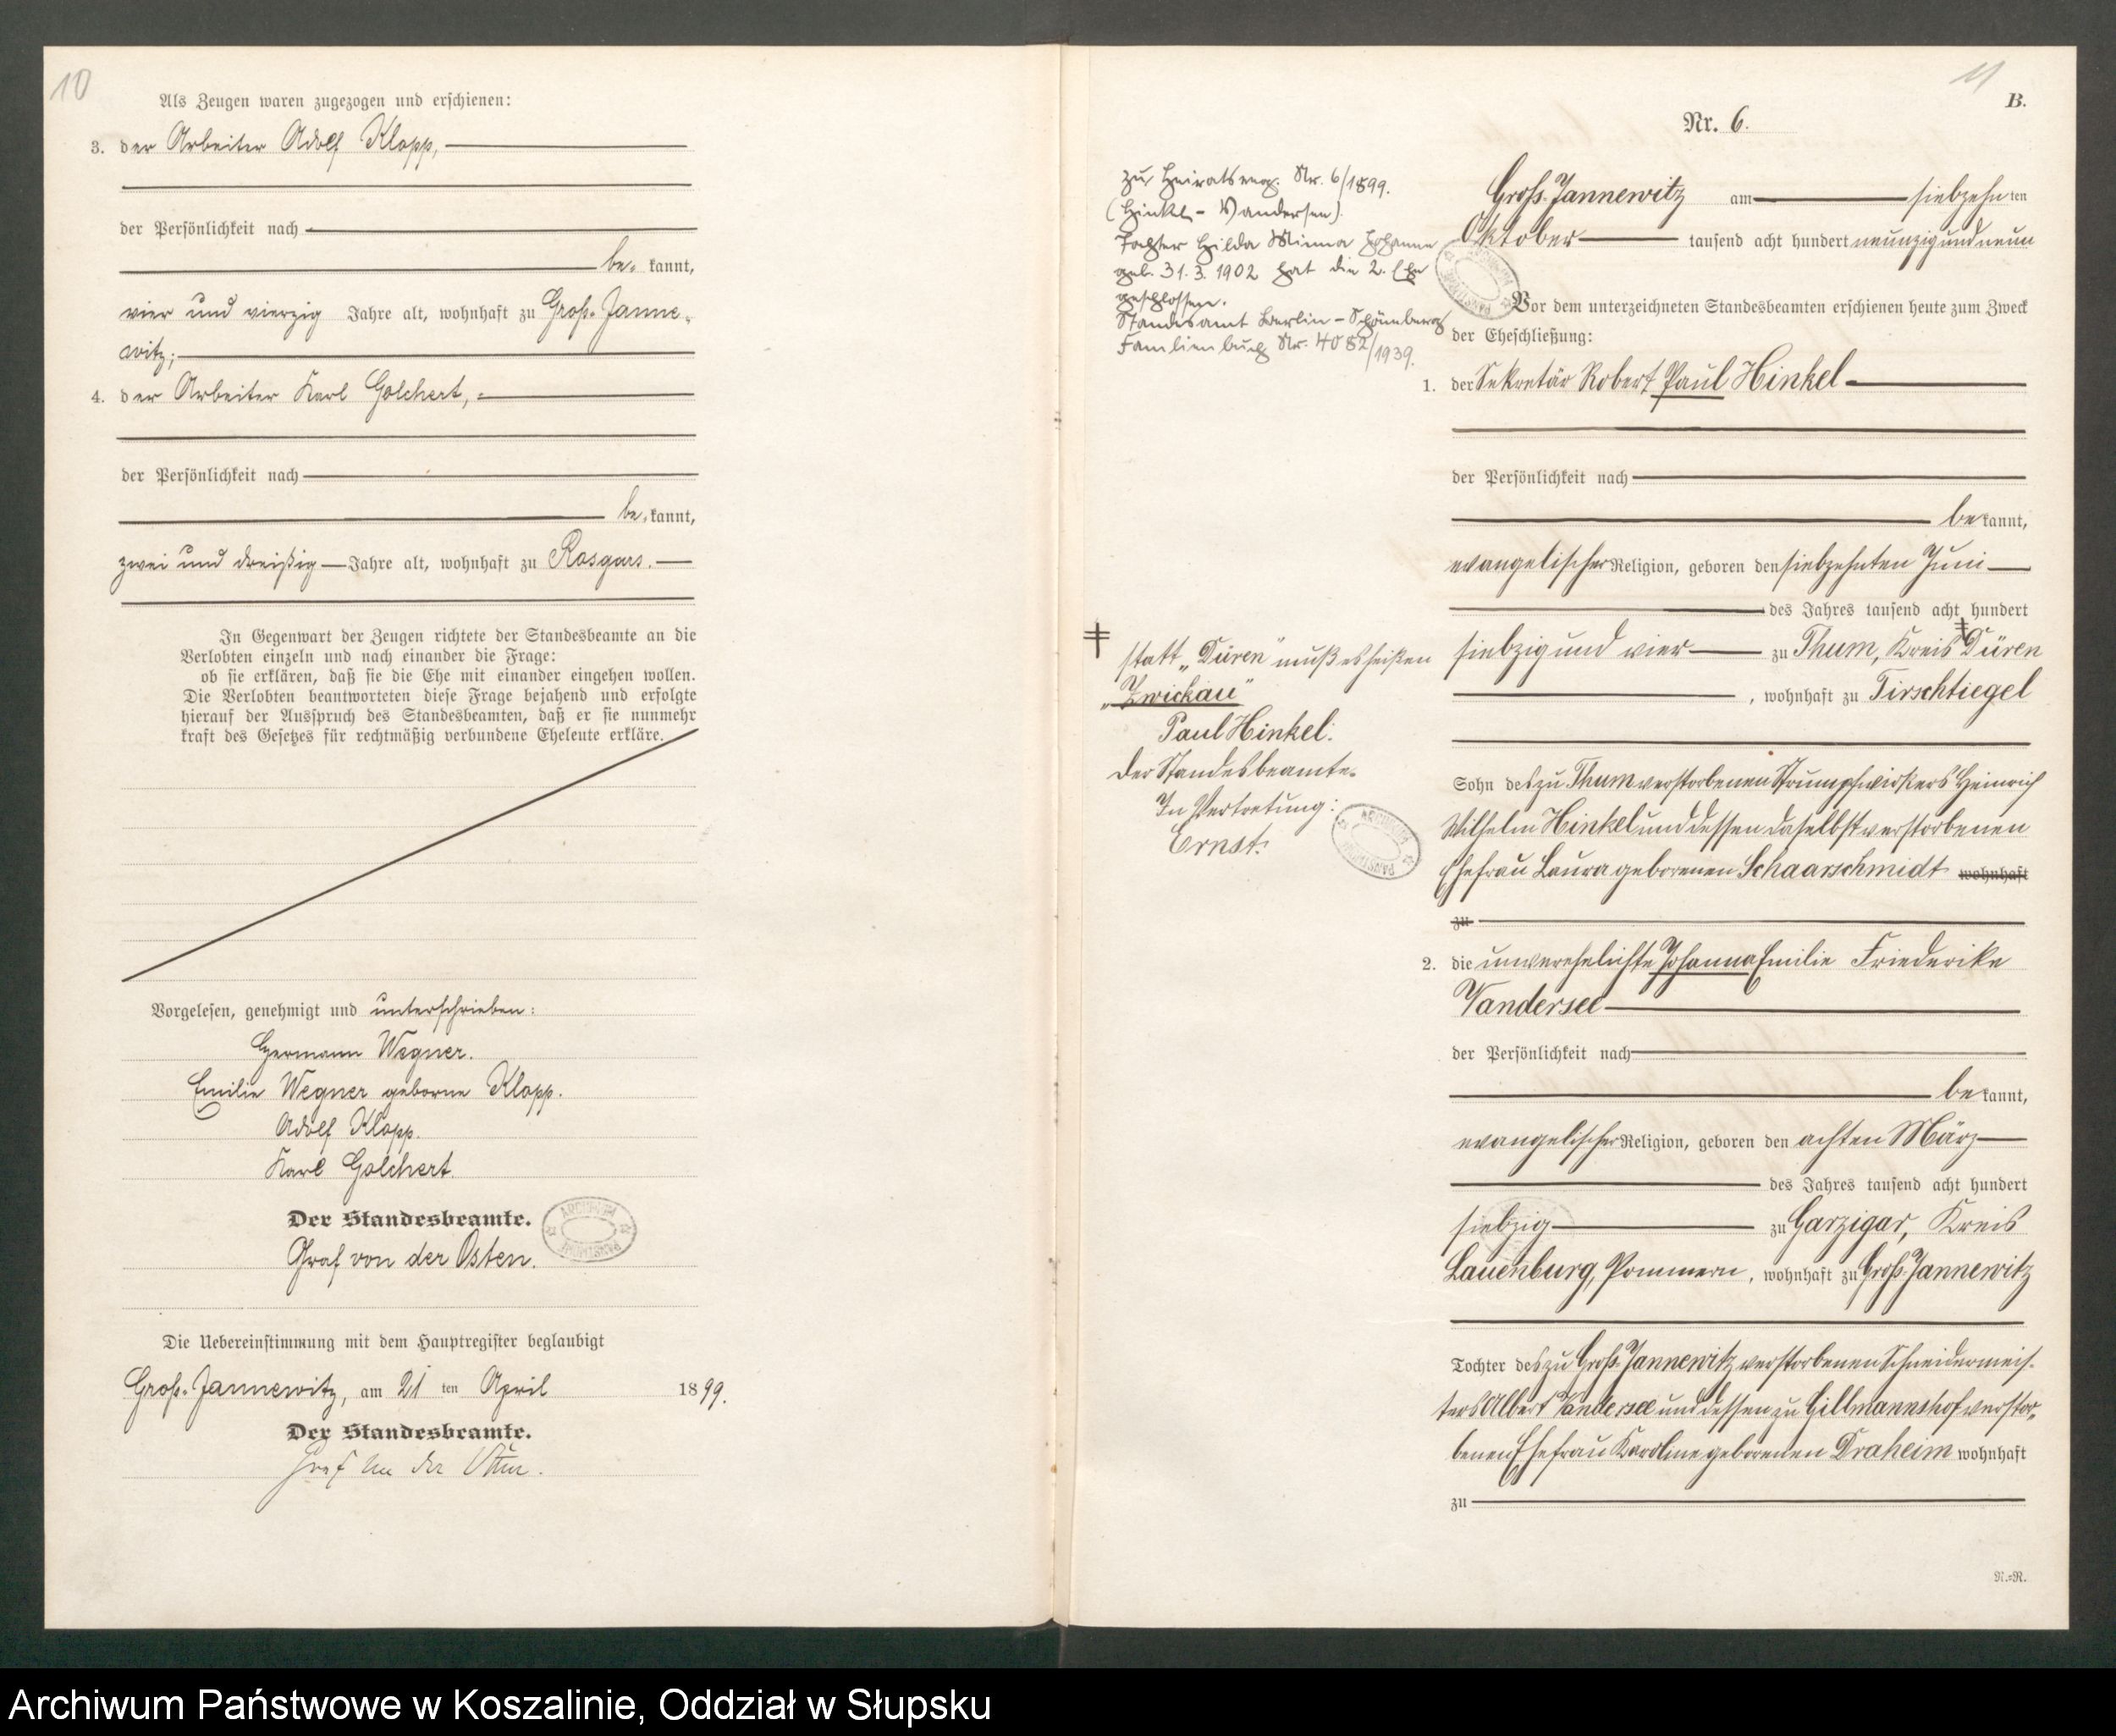 10
Als Zeugen waren zugezogen und erschienen:
3. der Arbeiter Adolf Klopp,
der Persönlichkeit nach
be. kannt,
vier und vierzig Jahre alt, wohnhaft zu Groß-Janne-
witz;
4. der Arbeiter Karl Golchert,
der Persönlichkeit nach
be. kannt,
zwei und dreißig Jahre alt, wohnhaft zu Rosgars.
In Gegenwart der Zeugen richtete der Standesbeamte an die
Verlobten einzeln und nach einander die Frage:
ob sie erklären, daß sie die Ehe mit einander eingehen wollen.
Die Verlobten beantworteten diese Frage bejahend und erfolgte
hierauf der Ausspruch des Standesbeamten, daß er sie nunmehr
kraft des Gesetzes für rechtmäßig verbundene Eheleute erkläre.
Vorgelesen, genehmigt und unterschrieben:
Hermann Wegner.
Emilie Wegner geborne Klopp.
Adolf Klopp.
Karl Golchert.
Der Standesbeamte.
Graf von der Osten.
ARCHIWUM PAŃSTWOWE
Die Uebereinstimmung mit dem Hauptregister beglaubigt
Groß-Jannewitz, am 21 ten April 1899.
Der Standesbeamte.
Graf von der Osten.
11
B.
Nr. 6.
zu Heiratsreg. Nr. 6/1899.
(Hinkel - Vandersee).
Tochter Hilda Minna Johanna
geb. 31. 3. 1902 hat die 2. Ehe
geschlossen.
Standesamt Berlin - Schöneberg
Familienbuch Nr. 4082/1939.
Groß-Jannewitz am siebzehn ten
Oktober tausend acht hundert neunzig und neun
ARCHIWUM PAŃSTWOWE
Vor dem unterzeichneten Standesbeamten erschienen heute zum Zweck
der Eheschließung:
1. der Sekretär Robert Paul Hinkel
der Persönlichkeit nach
be kannt,
evangelischer Religion, geboren den siebzehnten Juni
des Jahres tausend acht hundert
siebzig und vier zu Thum, Kreis ‡ Düren
, wohnhaft zu Tirschtiegel
‡ statt „Düren" muß es heißen
„Zwickau"
Paul Hinkel.
Der Standesbeamte.
In Vertretung:
Ernst.
ARCHIWUM PAŃSTWOWE
Sohn des zu Thum verstorbenen Strumpfwirkers Heinrich
Wilhelm Hinkel und dessen daselbst verstorbenen
Ehefrau Laura geborenen Schaarschmidt wohnhaft
zu
2. die unverehelichte Johanna Emilie Friederike
Vandersee
der Persönlichkeit nach
be kannt,
evangelischer Religion, geboren den achten März
des Jahres tausend acht hundert
siebzig zu Garzigar, Kreis
Lauenburg, Pommern, wohnhaft zu Groß-Jannewitz
Tochter des zu Groß-Jannewitz verstorbenen Schneidermeis-
ters Albert Vandersee und dessen zu Hillmannshof verstor-
benen Ehefrau Karoline geborenen Draheim wohnhaft
zu
N.=N.
Archiwum Państwowe w Koszalinie, Oddział w Słupsku